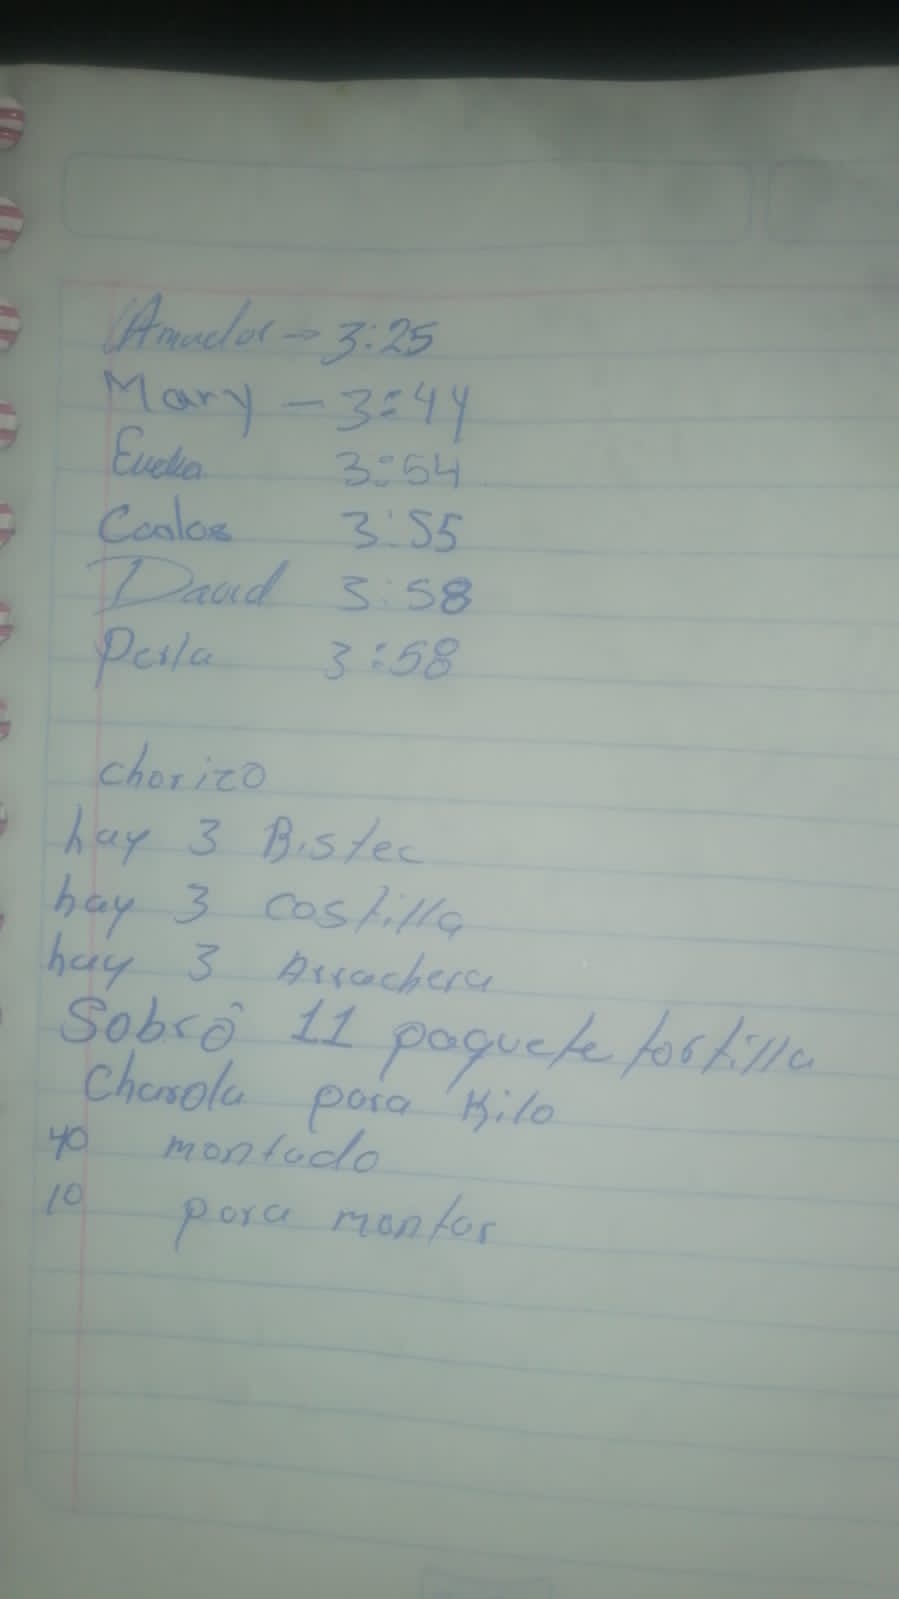 Amador → 3:25
Mary - 3:44
3:54
Carlos 3:55
David 3:58
Perla 3:58
chorizo
hay 3 Bistec
hay 3 costilla
hay 3 Arrachera
Sobró 11 paquete tortilla
Charola para Kilo
40 montado
10 para montar